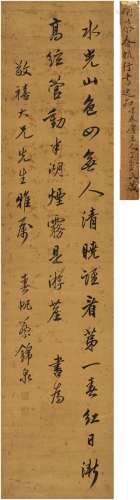 水光山色四無人清曉誰看第一春紅日漸
高絃管動半湖煙霧是游塵 書為
敬禧大兄先生雅屬 春帆蔡錦泉